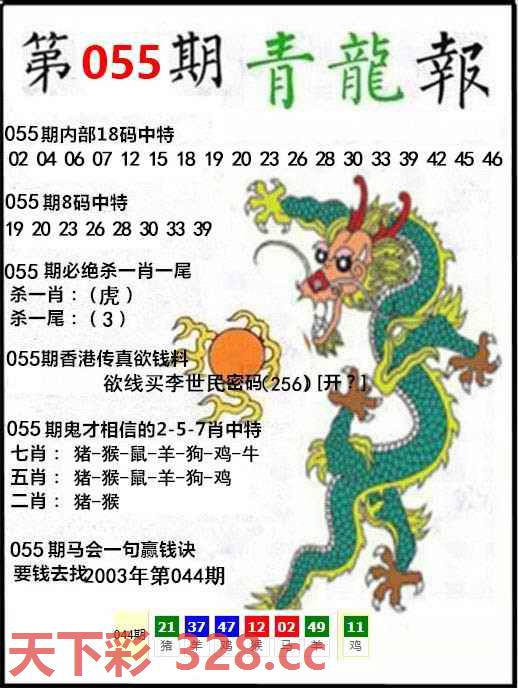 第055期青龍報
055期内部18码中特
02 04 06 07 12 15 18 19 20 23 26 28 30 33 39 42 45 46
055期8码中特
19 20 23 26 28 30 33 39
055期必绝杀一肖一尾
杀一肖：（虎）
杀一尾：（3）
055期香港传真欲钱料
欲线买李世民密码(256)[开？]
055期鬼才相信的2-5-7肖中特
七肖：猪-猴-鼠-羊-狗-鸡-牛
五肖：猪-猴-鼠-羊-狗-鸡
二肖：猪-猴
055期马会一句赢钱诀
要钱去找2003年第044期
044期 21 37 47 12 02 49 11
猪 羊 鸡 猴 马 羊 鸡
天下彩 328.cc